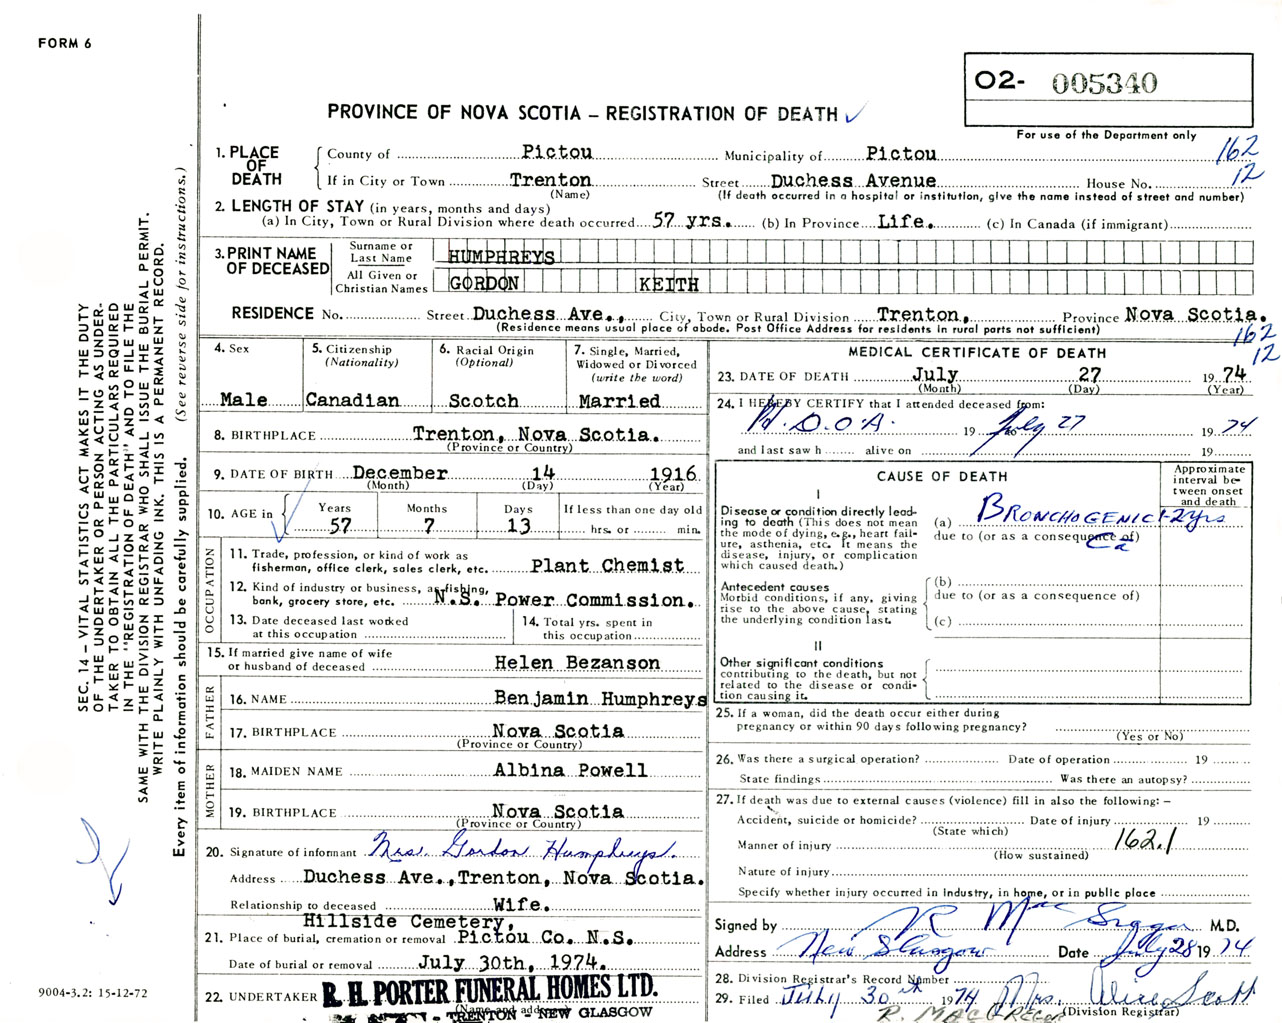 FORM 6
O2- 005340
For use of the Department only
PROVINCE OF NOVA SCOTIA – REGISTRATION OF DEATH
162
12
1. PLACE OF DEATH
County of Pictou Municipality of Pictou
If in City or Town Trenton Street Duchess Avenue House No.
(Name) (If death occurred in a hospital or institution, give the name instead of street and number)
2. LENGTH OF STAY (in years, months and days)
(a) In City, Town or Rural Division where death occurred 57 yrs. (b) In Province Life. (c) In Canada (if immigrant)
3. PRINT NAME OF DECEASED
Surname or Last Name HUMPHREYS
All Given or Christian Names GORDON KEITH
RESIDENCE No. Street Duchess Ave., City, Town or Rural Division Trenton, Province Nova Scotia.
(Residence means usual place of abode. Post Office Address for residents in rural parts not sufficient)
162
12
4. Sex
Male
5. Citizenship (Nationality)
Canadian
6. Racial Origin (Optional)
Scotch
7. Single, Married, Widowed or Divorced (write the word)
Married
8. BIRTHPLACE Trenton, Nova Scotia.
(Province or Country)
9. DATE OF BIRTH December 14 1916
(Month) (Day) (Year)
10. AGE in
Years Months Days If less than one day old
57 7 13 hrs. or min.
OCCUPATION
11. Trade, profession, or kind of work as
fisherman, office clerk, sales clerk, etc. Plant Chemist
12. Kind of industry or business, as fishing,
bank, grocery store, etc. N.S. Power Commission.
13. Date deceased last worked
at this occupation
14. Total yrs. spent in
this occupation
15. If married give name of wife
or husband of deceased Helen Bezanson
FATHER
16. NAME Benjamin Humphreys
17. BIRTHPLACE Nova Scotia
(Province or Country)
MOTHER
18. MAIDEN NAME Albina Powell
19. BIRTHPLACE Nova Scotia
(Province or Country)
20. Signature of informant Mrs. Gordon Humphreys.
Address Duchess Ave., Trenton, Nova Scotia.
Relationship to deceased Wife.
Hillside Cemetery,
21. Place of burial, cremation or removal Pictou Co. N.S.
Date of burial or removal July 30th, 1974.
22. UNDERTAKER R. H. PORTER FUNERAL HOMES LTD.
(Name and address)
TRENTON - NEW GLASGOW
MEDICAL CERTIFICATE OF DEATH
23. DATE OF DEATH July 27 1974
(Month) (Day) (Year)
24. I HEREBY CERTIFY that I attended deceased from:
D.O.A. 19 to July 27 1974
and last saw h alive on 19
CAUSE OF DEATH
Approximate interval between onset and death
I
Disease or condition directly leading to death (This does not mean the mode of dying, e.g., heart failure, asthenia, etc. It means the disease, injury, or complication which caused death.)
(a) BRONCHOGENIC 1-2 yrs
due to (or as a consequence of)
Ca
Antecedent causes
Morbid conditions, if any, giving rise to the above cause, stating the underlying condition last.
(b)
due to (or as a consequence of)
(c)
II
Other significant conditions contributing to the death, but not related to the disease or condition causing it.
25. If a woman, did the death occur either during
pregnancy or within 90 days following pregnancy?
(Yes or No)
26. Was there a surgical operation? Date of operation 19
State findings Was there an autopsy?
27. If death was due to external causes (violence) fill in also the following: –
Accident, suicide or homicide? Date of injury 19
(State which)
Manner of injury 162.1
(How sustained)
Nature of injury
Specify whether injury occurred in Industry, in home, or in public place
Signed by R MacGregor M.D.
Address New Glasgow Date July 28 1974
28. Division Registrar's Record Number
29. Filed July 30th 1974 Mrs. Alice Scott
(Division Registrar)
R. MACGREGOR
SEC. 14 – VITAL STATISTICS ACT MAKES IT THE DUTY
OF THE UNDERTAKER OR PERSON ACTING AS UNDER-
TAKER TO OBTAIN ALL THE PARTICULARS REQUIRED
IN THE "REGISTRATION OF DEATH" AND TO FILE THE
SAME WITH THE DIVISION REGISTRAR WHO SHALL ISSUE THE BURIAL PERMIT.
WRITE PLAINLY WITH UNFADING INK. THIS IS A PERMANENT RECORD.
Every item of information should be carefully supplied. (See reverse side for instructions.)
9004-3.2: 15-12-72